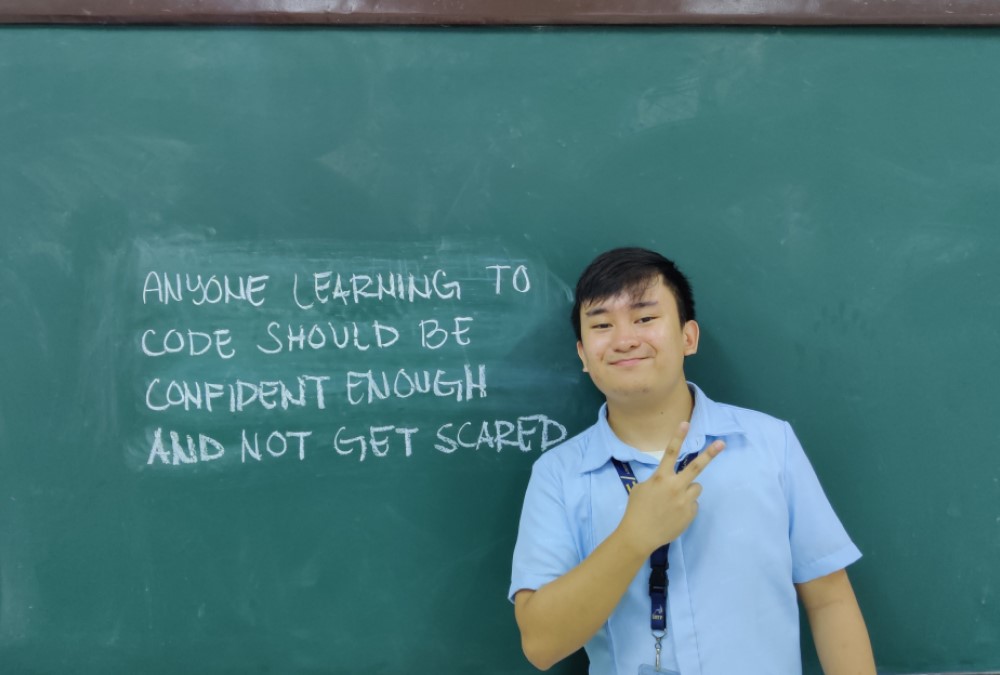 ANYONE LEARNING TO
CODE SHOULD BE
CONFIDENT ENOUGH
AND NOT GET SCARED